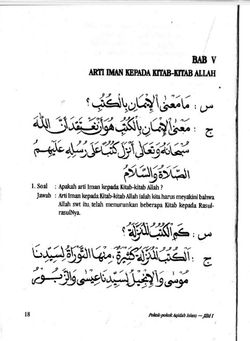 BAB V
ARTI IMAN KEPADA KITAB-KITAB ALLAH
س : مَا مَعْنَى الْإِيْمَانِ بِالْكُتُبِ؟
ج : مَعْنَى الْإِيْمَانِ بِالْكُتُبِ هُوَ أَنْ نَعْتَقِدَ أَنَّ اللهَ
سُبْحَانَهُ وَتَعَالَى أَنْزَلَ كُتُبًا عَلَى رُسُلِهِ عَلَيْهِمُ
الصَّلَاةُ وَالسَّلَامُ
1. Soal : Apakah arti Iman kepada Kitab-kitab Allah ?
Jawab : Arti Iman kepada Kitab-kitab Allah ialah kita harus meyakini bahwa
Allah swt itu telah menurunkan beberapa Kitab kepada Rasul-
rasulNya.
س : كَمِ الْكُتُبُ الْمُنْزَلَةُ؟
ج : الْكُتُبُ الْمُنْزَلَةُ كَثِيْرَةٌ، مِنْهَا: التَّوْرَاةُ لِسَيِّدِنَا
مُوسَى وَالْإِنْجِيْلُ لِسَيِّدِنَا عِيْسَى وَالزَّبُوْرُ
18
Pokok-pokok Aqidah Islam — Jilid I